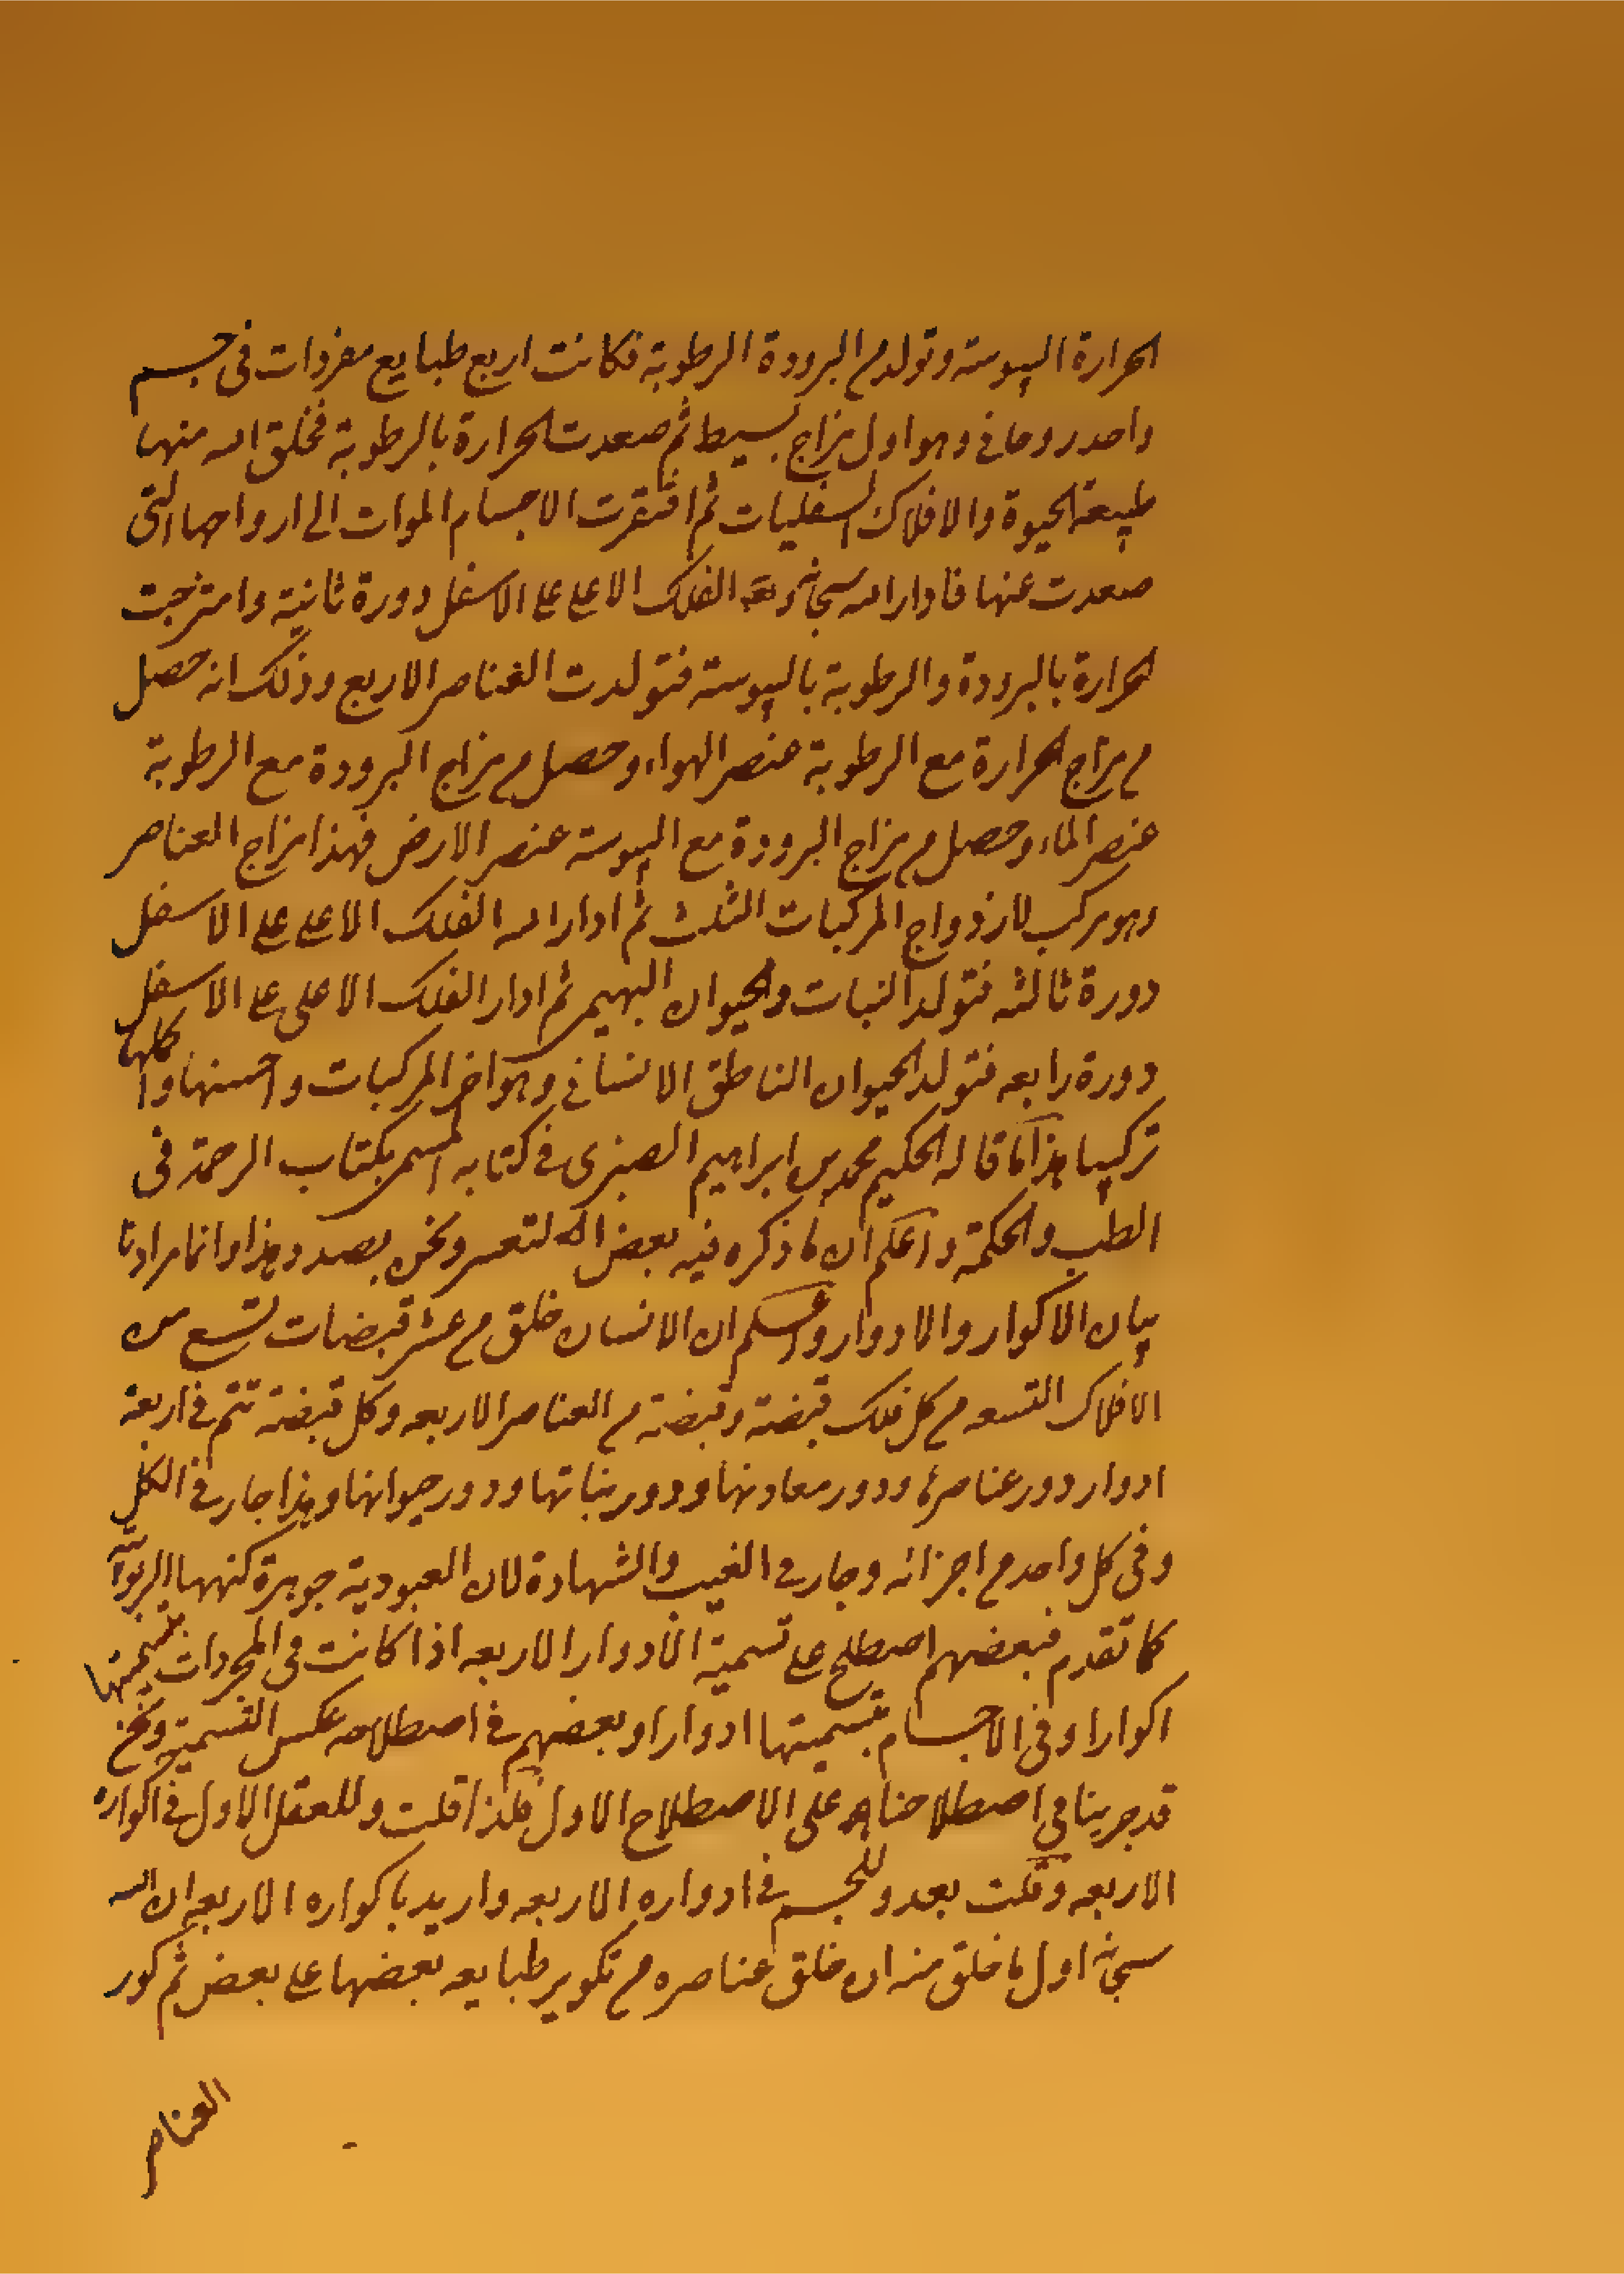 الحرارة اليبوسة وتولد من البرودة الرطوبة فكانت اربع طبايع مفردات في جسم
واحد روحاني وهو اول مزاج بسيط ثم صعدت الحرارة بالرطوبة فخلق الله منها
طبيعة الحيوة والافلاك السفليات ثم افتقرت الاجسام الموات الى ارواحها التي
صعدت عنها فادار الله سبحانه وتعالى الفلك الاعلى على الاسفل دورة ثانية وامتزجت
الحرارة بالبرودة والرطوبة باليبوسة فتولدت العناصر الاربع وذلك انه حصل
من مزاج الحرارة مع الرطوبة عنصر الهواء وحصل من مزاج البرودة مع الرطوبة
عنصر الماء وحصل من مزاج البرودة مع اليبوسة عنصر الارض فهذا مزاج العناصر
وهو مركب لازدواج المركبات الثلث ثم ادار الله الفلك الاعلى على الاسفل
دورة ثالثه فتولد النبات والحيوان البهيمي ثم ادار الفلك الاعلى على الاسفل
دورة رابعه فتولد الحيوان الناطق الانساني وهو اخر المركبات واحسنها واكملها
تركيبا هذا ما قاله الحكيم محمد بن ابراهيم الصبنرى في كتابه المسمى بكتاب الرحمة في
الطب والحكمة واعلم ان ما ذكره فيه بعض لتعسر ونحن بصدد هذا وانما مرادنا
بيان الاكوار والادوار واعلم ان الانسان خلق من عشر قبضات تسع من
الافلاك التسعه من كل فلك قبضة وقبضة من العناصر الاربعه وكل قبضة تتم في اربعة
ادوار دور عناصرها ودور معادنها ودور نباتها ودور حيوانها وهذا جار في الكل
وفي كل واحد من اجزائه وجار في الغيب والشهادة لان العبودية جوهرة كنهها الربوبية
كما تقدم فبعضهم اصطلح على تسمية الادوار الاربعه اذا كانت في المجردات بتسميتها
اكوارا وفي الاجسام بتسميتها ادوارا وبعضهم في اصطلاحه عكس التسمية ونحن
قد جرينا في اصطلاحنا على الاصطلاح الاول فلذا قلت وللعقل الاول في اكواره
الاربعه وقلت بعد وللجسم في ادواره الاربعه واريد باكواره الاربعه ان الله
سبحانه اول ما خلق منه ان خلق عناصره من تكوير طبايعه بعضها على بعض ثم كور
العناصر